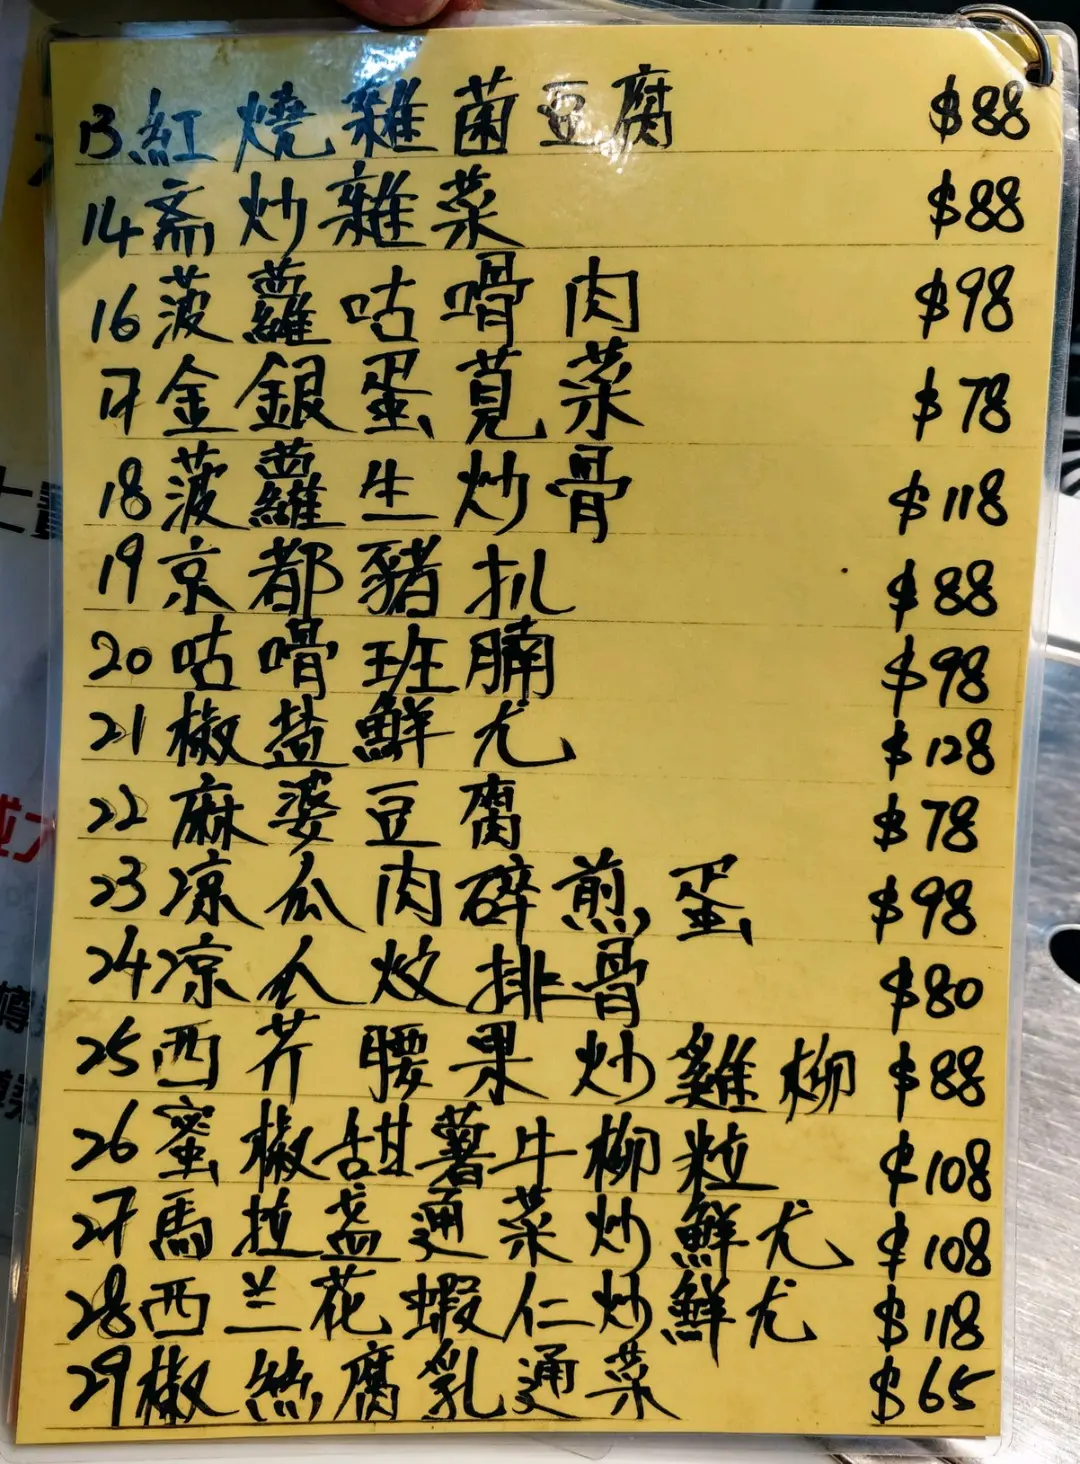 13 紅燒雜菌豆腐 $88
14 斋炒雜菜 $88
16 菠蘿咕嘈肉 $98
17 金銀蛋莧菜 $78
18 菠蘿生炒骨 $118
19 京都豬扒 $88
20 咕嗗班腩 $98
21 椒盐鮮尤 $128
22 麻婆豆腐 $78
23 凉瓜肉碎煎蛋 $98
24 凉瓜炆排骨 $80
25 西芥腰果炒雞柳 $88
26 蜜椒甜薯牛柳粒 $108
27 馬拉盏通菜炒鮮尤 $108
28 西兰花蝦仁炒鮮尤 $118
29 椒絲腐乳通菜 $65